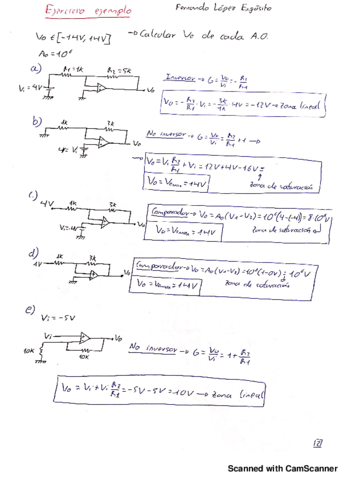 Ejercicio ejemplo
Fernando López Expósito
Vo ∈ [-14V, 14V] → Calcular Vo de cada A.O.
Ao = 10⁶
a) R1=1k R2=3k
Vi=4V
Vo
Inversor → G = Vo/Vi = -R2/R1
Vo = -R2/R1 · Vi = -3k/1k · 4V = -12V → Zona lineal
b) 1k 3k
4V= Vi
Vo
No inversor → G = Vo/Vi = R2/R1 + 1 →
→ Vo = Vi R2/R1 + Vi = 12V + 4V = 16V =
Vo = Vomax = 14V
zona de saturación
c) 4V 1k 3k
Vi=-4V
Vo
Comparador → Vo = Ao(Va-Vb) = 10⁶(4-(-4)) = 8·10⁶V
Vo = Vomax = 14V
Zona de saturación
d) 1V 1k 3k
Vo
Comparador → Vo = Ao(Va-Vb) = 10⁶(1-0V) = 10⁶V
Vo = Vomax = 14V
Zona de saturación
e) Vi = -5V
Vi
Vo
10k
10k
No inversor → G = Vo/Vi = 1 + R2/R1
Vo = Vi + Vi R2/R1 = -5V - 5V = -10V → zona lineal
Scanned with CamScanner